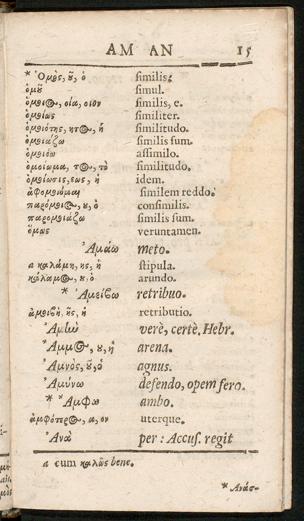 AM AN 15
* Ὁμὸς, ȣ͂, ὁ similis;
ὁμȣ͂ simul.
ὅμοιος, οία, οιον similis, e.
ὁμοίως similiter.
ὁμοιότης, ητος, ἡ similitudo.
ὁμοιάζω similis sum.
ὁμοιόω assimilo.
ὁμοίωμα, τος, τὸ similitudo.
ὁμοίωσις, εως, ἡ idem.
ἀφομοιόομαι similem reddo.
παρόμοιος, ȣ, ὁ consimilis.
παρομοιάζω similis sum.
ὅμως veruntamen.
Ἀμάω meto.
a καλάμη, ης, ἡ stipula.
κάλαμος, ȣ, ὁ arundo.
* Ἀμείβω retribuo.
ἀμοιβὴ, ῆς, ἡ retributio.
Ἀμὶω verè, certè, Hebr.
Ἄμμος, ȣ, ἡ arena.
Ἀμνὸς, ȣ͂, ὁ agnus.
Ἀμύνω defendo, opem fero.
* Ἄμφω ambo.
ἀμφότερος, α, ον uterque.
Ἀνὰ per : Accus. regit
a cum καλῶς bene.
* Ἀνάσ-